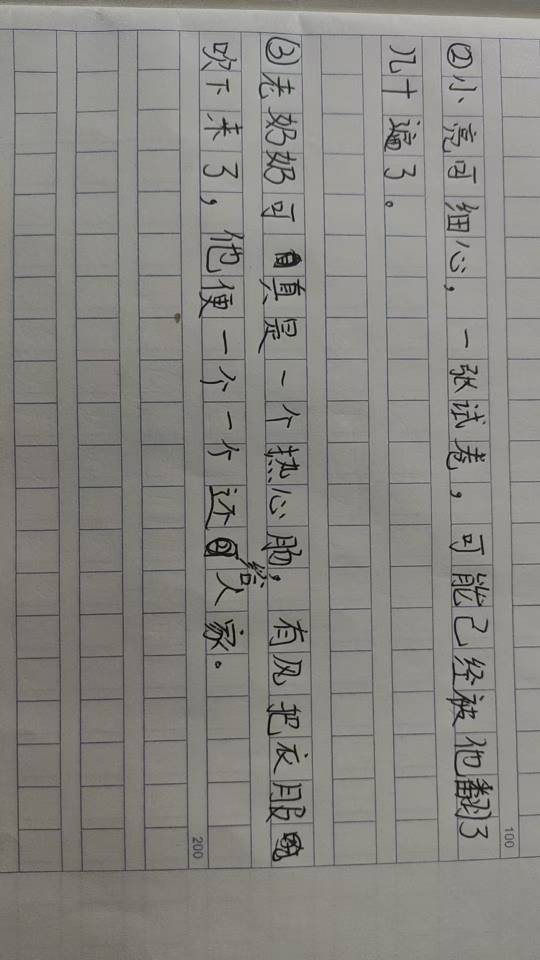 ②小亮可细心，一张试卷，可能已经被他翻了
100
几十遍了。
③老奶奶可真是一个热心肠，有风把衣服
吹下来了，他便一个一个还给人家。
200